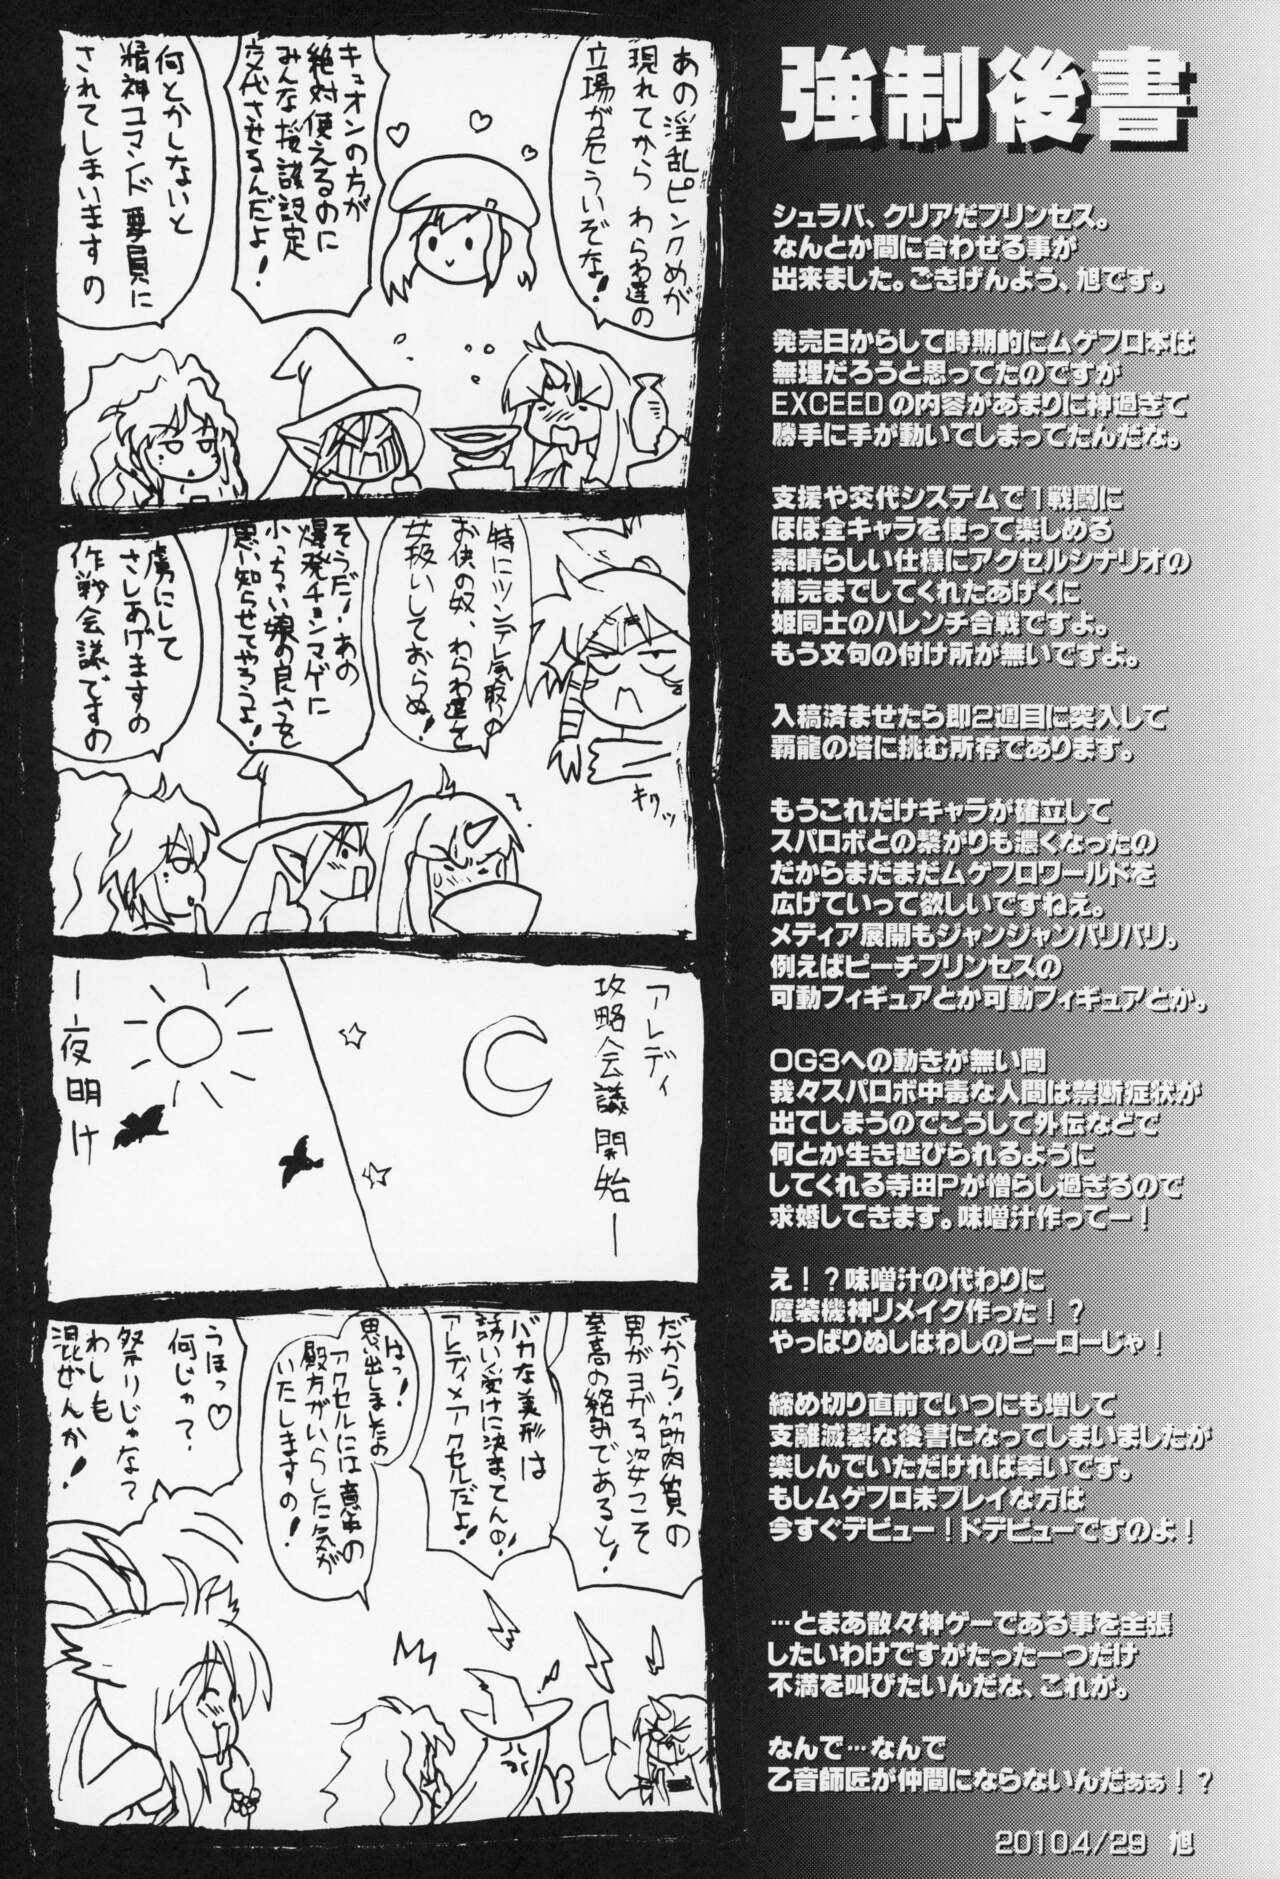 強制後書
シュラバ、クリアだプリンセス。
なんとか間に合わせる事が
出来ました。ごきげんよう、旭です。
発売日からして時期的にムゲフロ本は
無理だろうと思ってたのですが
EXCEEDの内容があまりに神過ぎて
勝手に手が動いてしまってたんだな。
支援や交代システムで1戦闘に
ほぼ全キャラを使って楽しめる
素晴らしい仕様にアクセルシナリオの
補完までしてくれたあげくに
姫同士のハレンチ合戦ですよ。
もう文句の付け所が無いですよ。
入稿済ませたら即2週目に突入して
覇龍の塔に挑む所存であります。
もうこれだけキャラが確立して
スパロボとの繋がりも濃くなったの
だからまだまだムゲフロワールドを
広げていって欲しいですねえ。
メディア展開もジャンジャンバリバリ。
例えばピーチプリンセスの
可動フィギュアとか可動フィギュアとか。
OG3への動きが無い間
我々スパロボ中毒な人間は禁断症状が
出てしまうのでこうして外伝などで
何とか生き延びられるように
してくれる寺田Pが憎らし過ぎるので
求婚してきます。味噌汁作ってー！
え！？味噌汁の代わりに
魔装機神リメイク作った！？
やっぱりぬしはわしのヒーローじゃ！
締め切り直前でいつにも増して
支離滅裂な後書になってしまいましたが
楽しんでいただければ幸いです。
もしムゲフロ未プレイな方は
今すぐデビュー！ドデビューですのよ！
…とまあ散々神ゲーである事を主張
したいわけですがたった一つだけ
不満を叫びたいんだな、これが。
なんで…なんで
乙音師匠が仲間にならないんだぁぁ！？
2010.4/29　旭
あの淫乱ピンクめが
現れてから わらわ達の
立場が危ういぞな！
キュオンの方が
絶対使えるのに
みんな援護設定
交代させるんだよ！
何とかしないと
精神コマンド要員に
されてしまいますの
特にツンデレ気取の
お供の奴、わらわ達を
女扱いしておらぬ！
そうだ！あの
爆発チョンマゲに
小っちゃい娘の良さを
思い知らせてやろうよ！
虜にして
さしあげますの
作戦会議ですの
キッ
アレディ
攻略会議開始ー
ー夜明け
だから！筋肉質の
男がヨガる姿こそ
至高の絡みであると！
バカな美形は
誘い受けに決まってんの！
アレディ×アクセルだよ！
はっ！
思出しましたの
アクセルには意中の
殿方がいらした気が
いたしますの！
うほっ♡
何じゃ？
祭りじゃな？
わしも
混ぜんか！